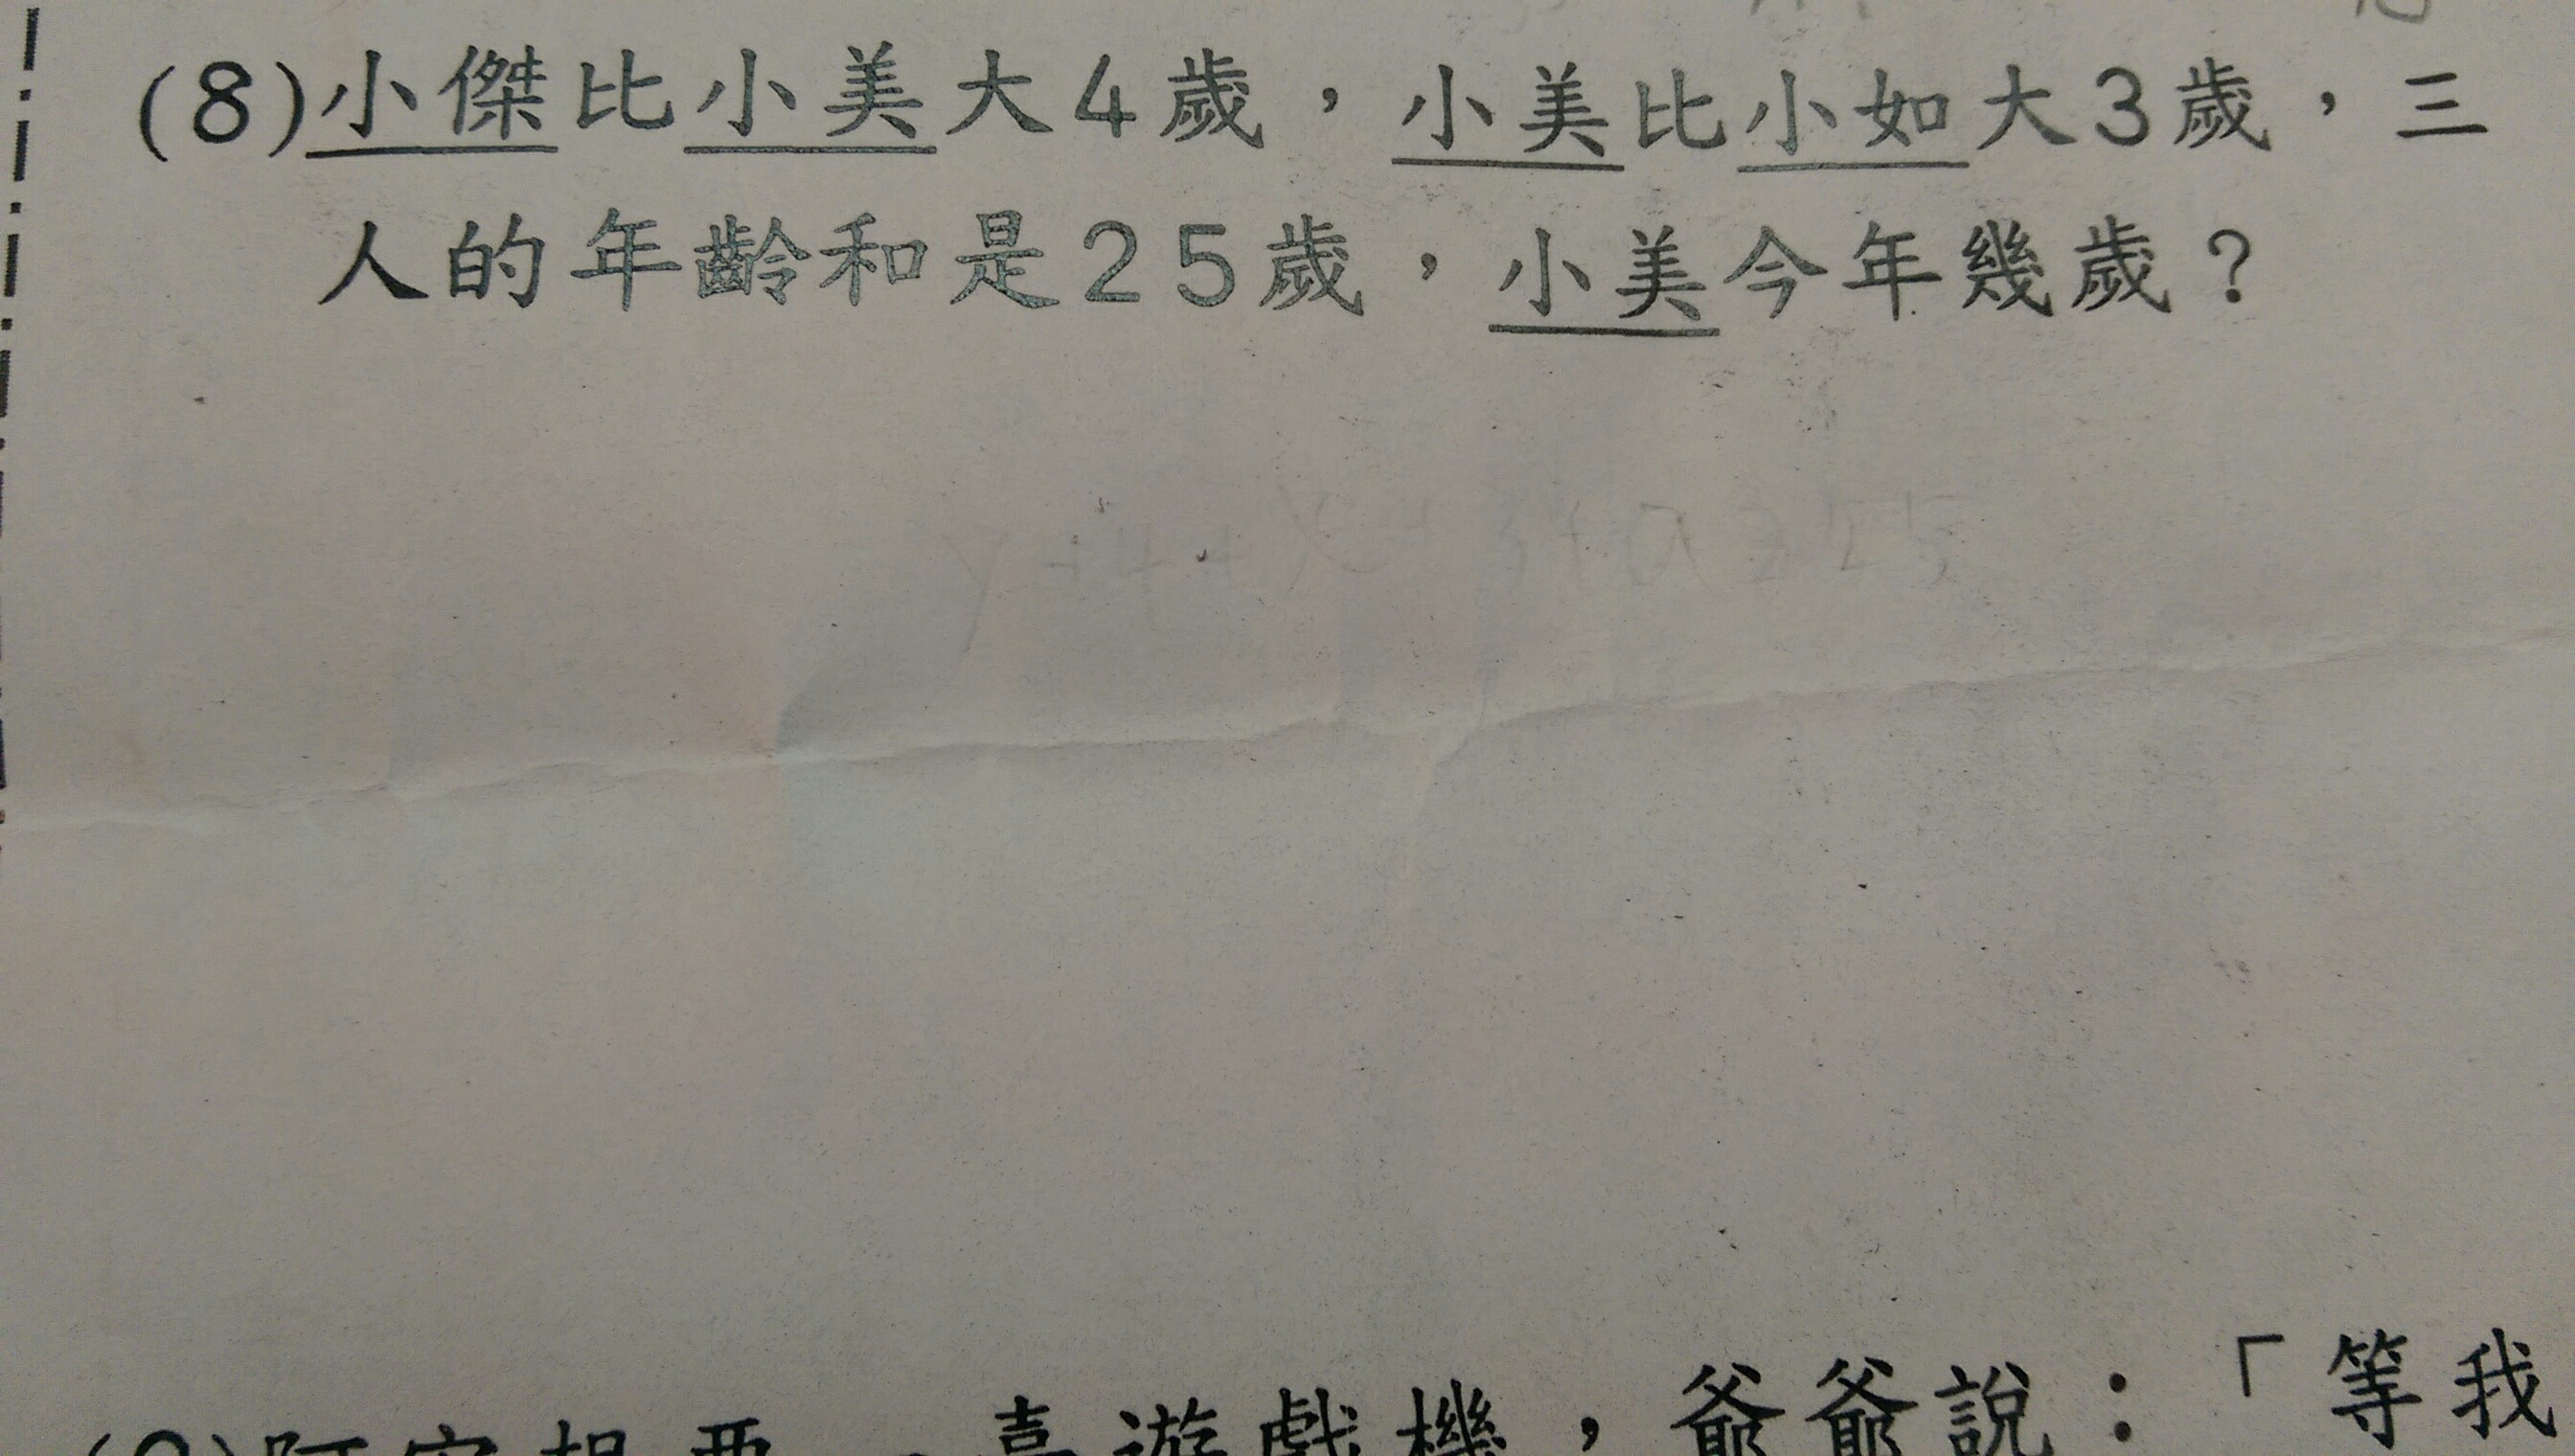 (8)小傑比小美大4歲，小美比小如大3歲，三
人的年齡和是25歲，小美今年幾歲？
遊戲機，爺爺說：「等我